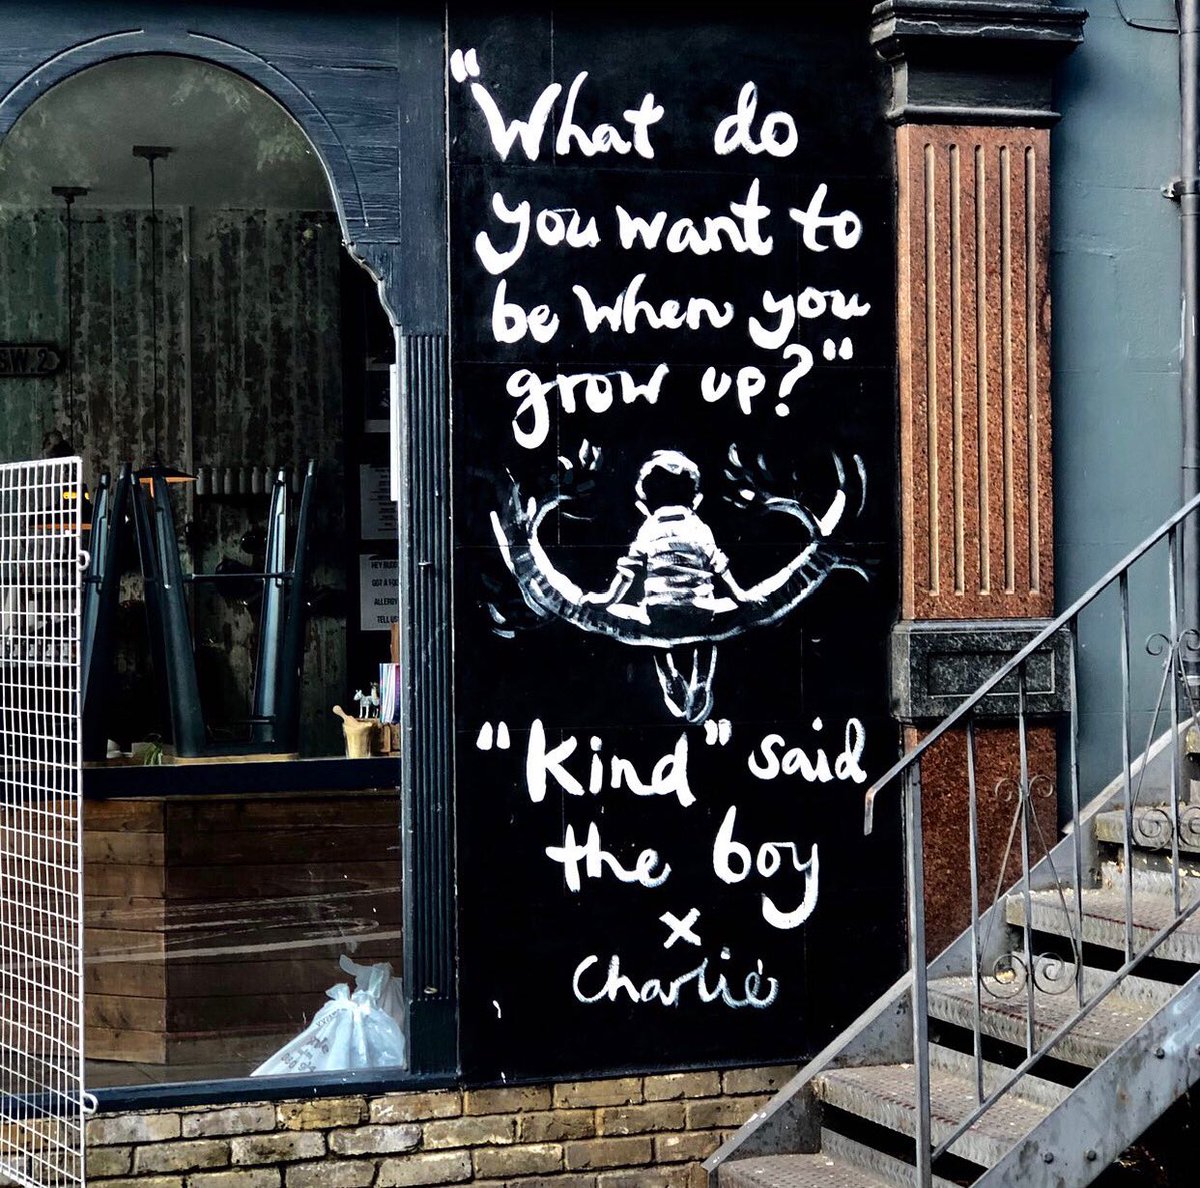 "What do
you want to
be when you
grow up?"
"Kind" said
the boy
x
Charlie
SW.2
HEY BUDD
GOT A FOO
ALLERG
TELL US